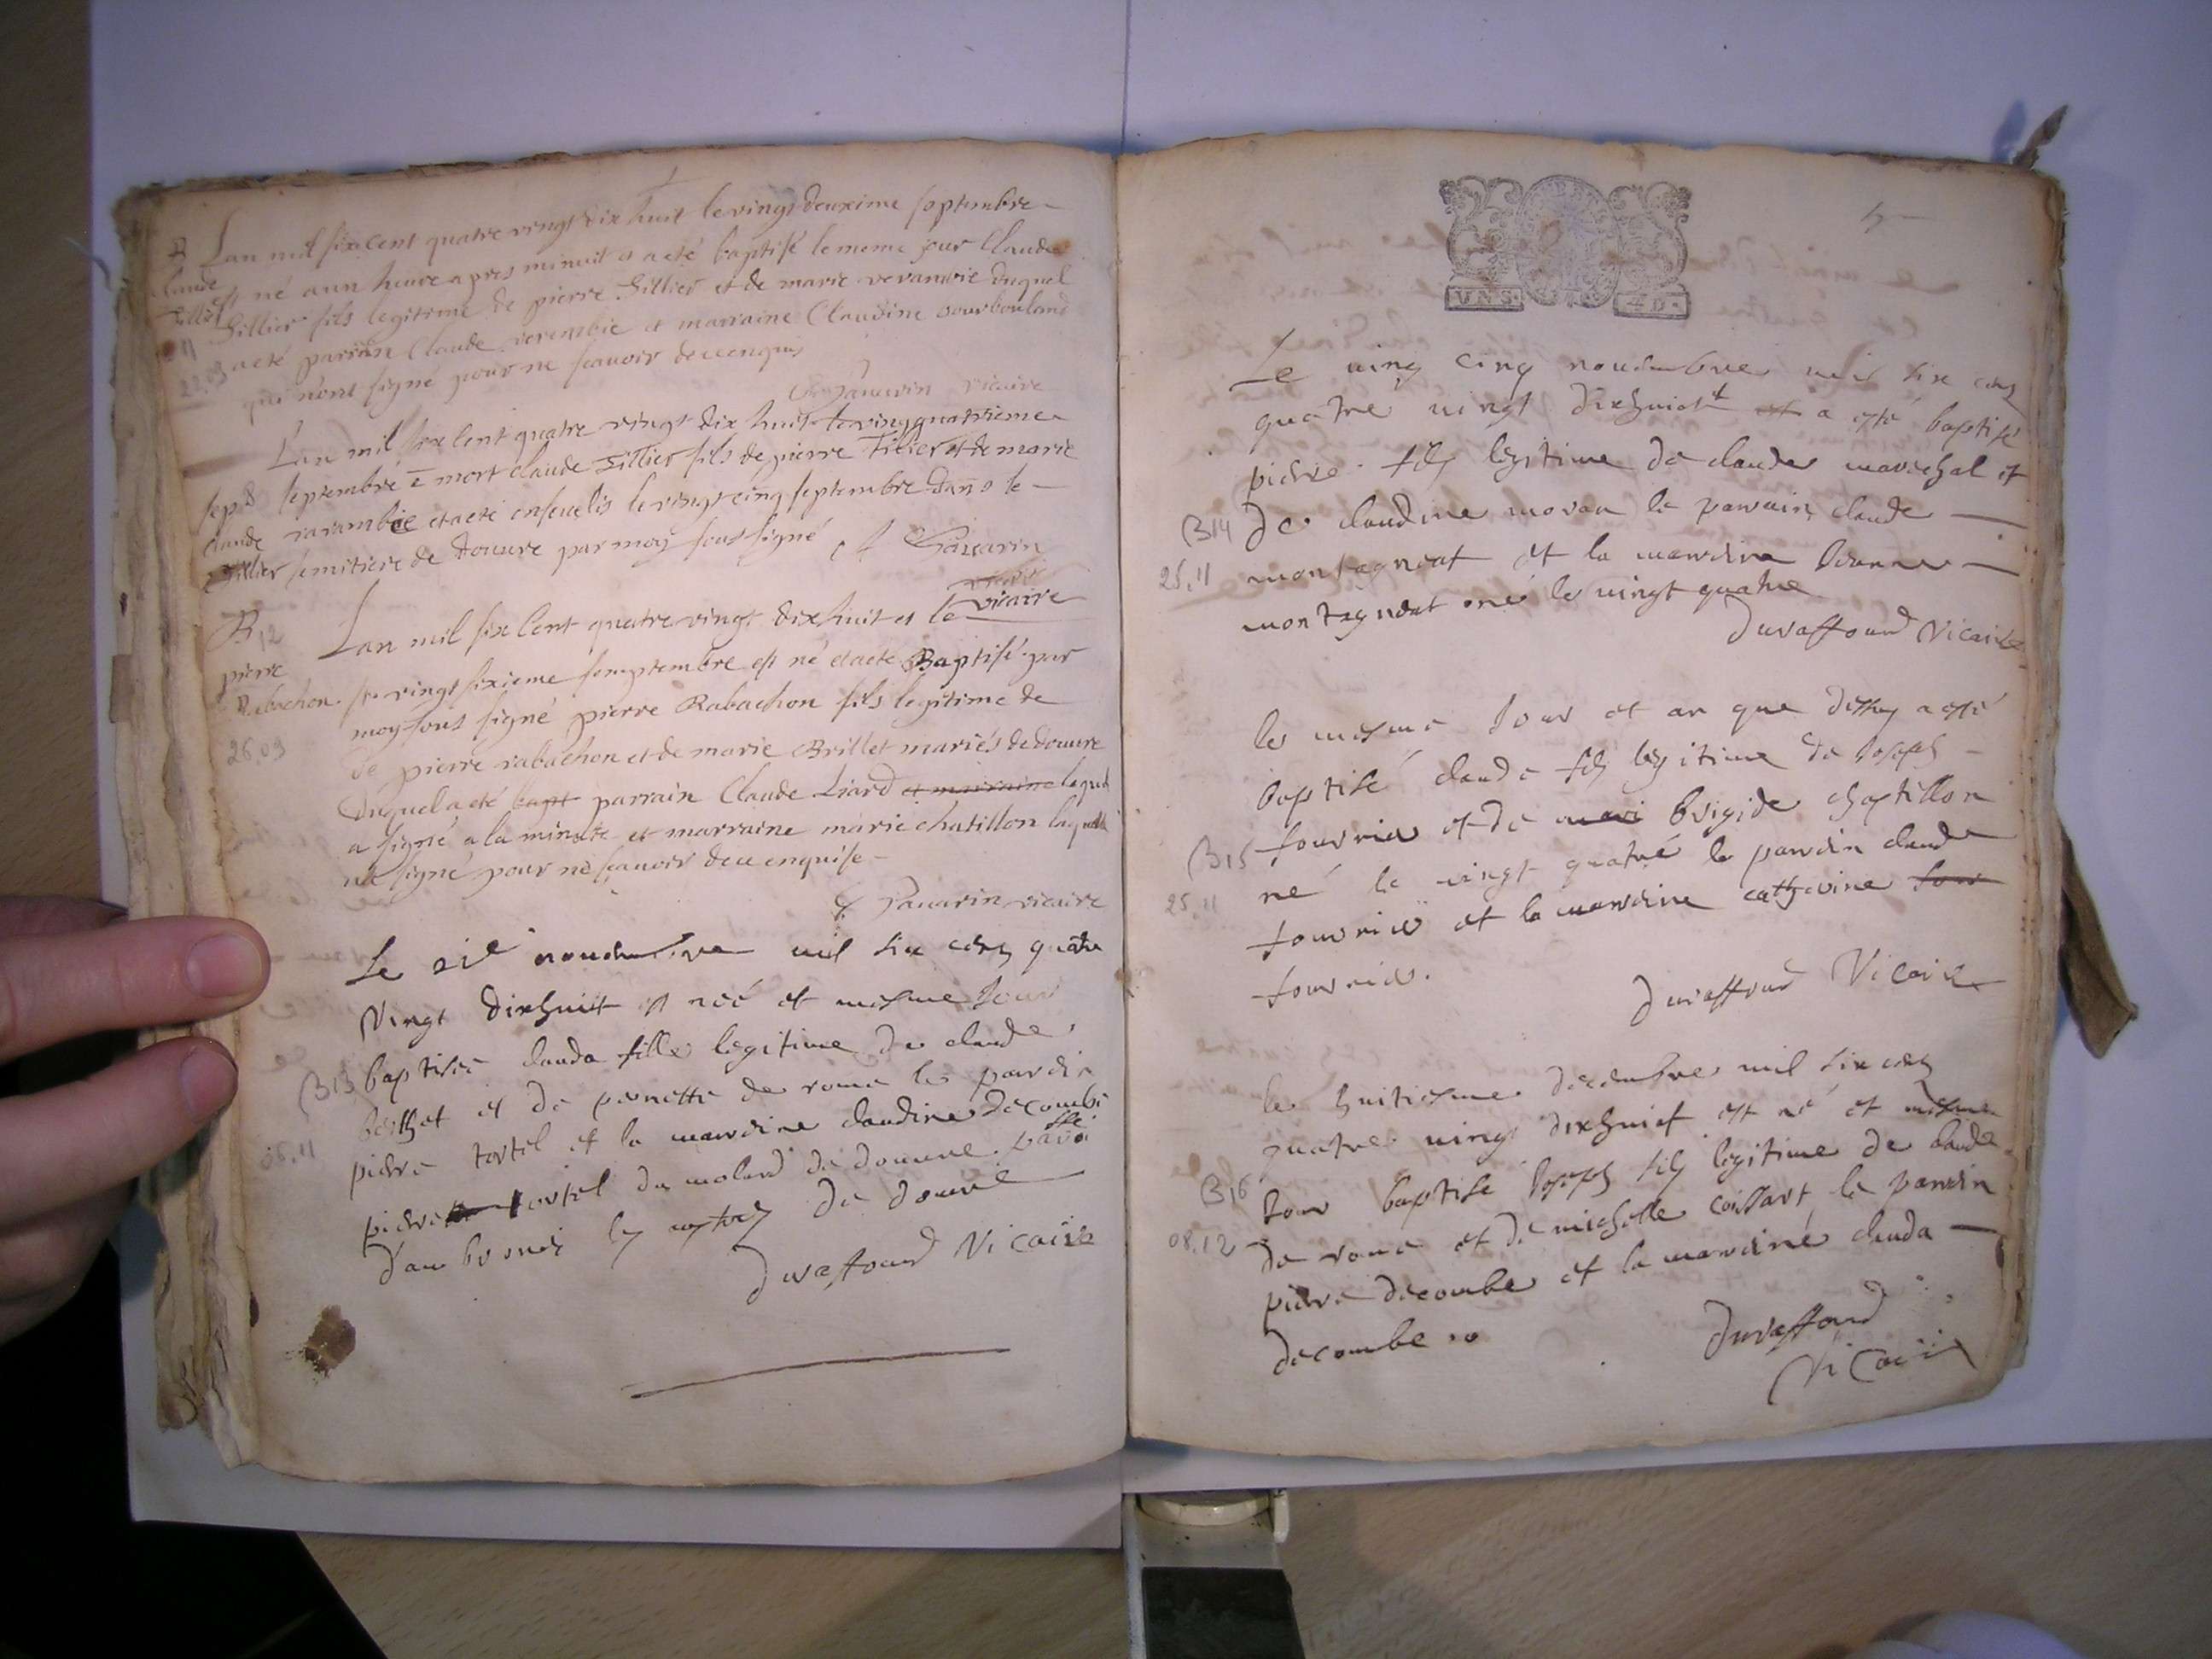 B
Claude
Tillier
11
22.09
Lan mil six Cent quatre vingt dix huit le vingt deuxime septembre
est né aun heure apres minuit et a eté baptisé le meme jour Claude
Tillier fils legitime de pierre Tillier et de marie verambie duquel
a eté parrain Claude verembie et marraine Claudine
qui n'ont signé pour ne scavoir de ce enquis
Pauarin vicaire
sep
Claude
Tillier
Lan mil six Cent quatre vingt dix huit le vingt quatrieme
septembre ē mort claude Tillier fils de pierre Tilier et de marie
varambie et a eté enseuelis le vingt cinq septembre dans le
semitiere de douure par moy sous signé
Pauarin
vicaire
B 12
pierre
Rabachon
26.09
Lan mil six Cent quatre vingt dix huit et le
vingt sixieme semptembre est né et a eté Baptisé par
moy sous signé pierre Rabachon fils legitime de
de pierre rabachon et de marie Brillet mariés de douure
duquel a eté bapt parrain Claude Liard et marraine lequel
a signé a la minute et marraine marie chatillon laquelle
na signé pour ne scauoir de ce enquise
Pauarin vicaire
B13
Le nouembre mil six cens quatre
Vingt dixhuit est néé et mesme Jour
baptisée clauda fille legitime de claude
et de pernette de roma le parrin
pierre tortel et la marreine claudine decombe
pierre tortel du molard de douure
de douure
Duraffourd Vicaire
VNS. 4D.
B14
25.11
Le uing cinq nouembre mil six cens
quatre uingt dixhuict est a esté baptisé
pierre fils legitime de claude marechal et
de claudine moran le parrain claude
montagneat et la marreine Jeanne
montagneat né le uingt quatre
Duraffourd Vicaire
le mesme Jour et an que dessus a esté
baptisé claude fils legitime de Joseph
B15
25.11
fournier et de mari brigide chastillon
né le vingt quatre le parrein claude
fournier et la marreine catherine four
fournier.
Duraffourd Vicaire
le huitiesme decembre mil six cens
quatre uingt dixhuict est né et mesme
B16
08.12
Jour baptise Joseph fils legitime de claude
de roma et de michelle coissart le parrein
pierre decombe et la marreine clauda
decombe
Duraffourd
Vicaire